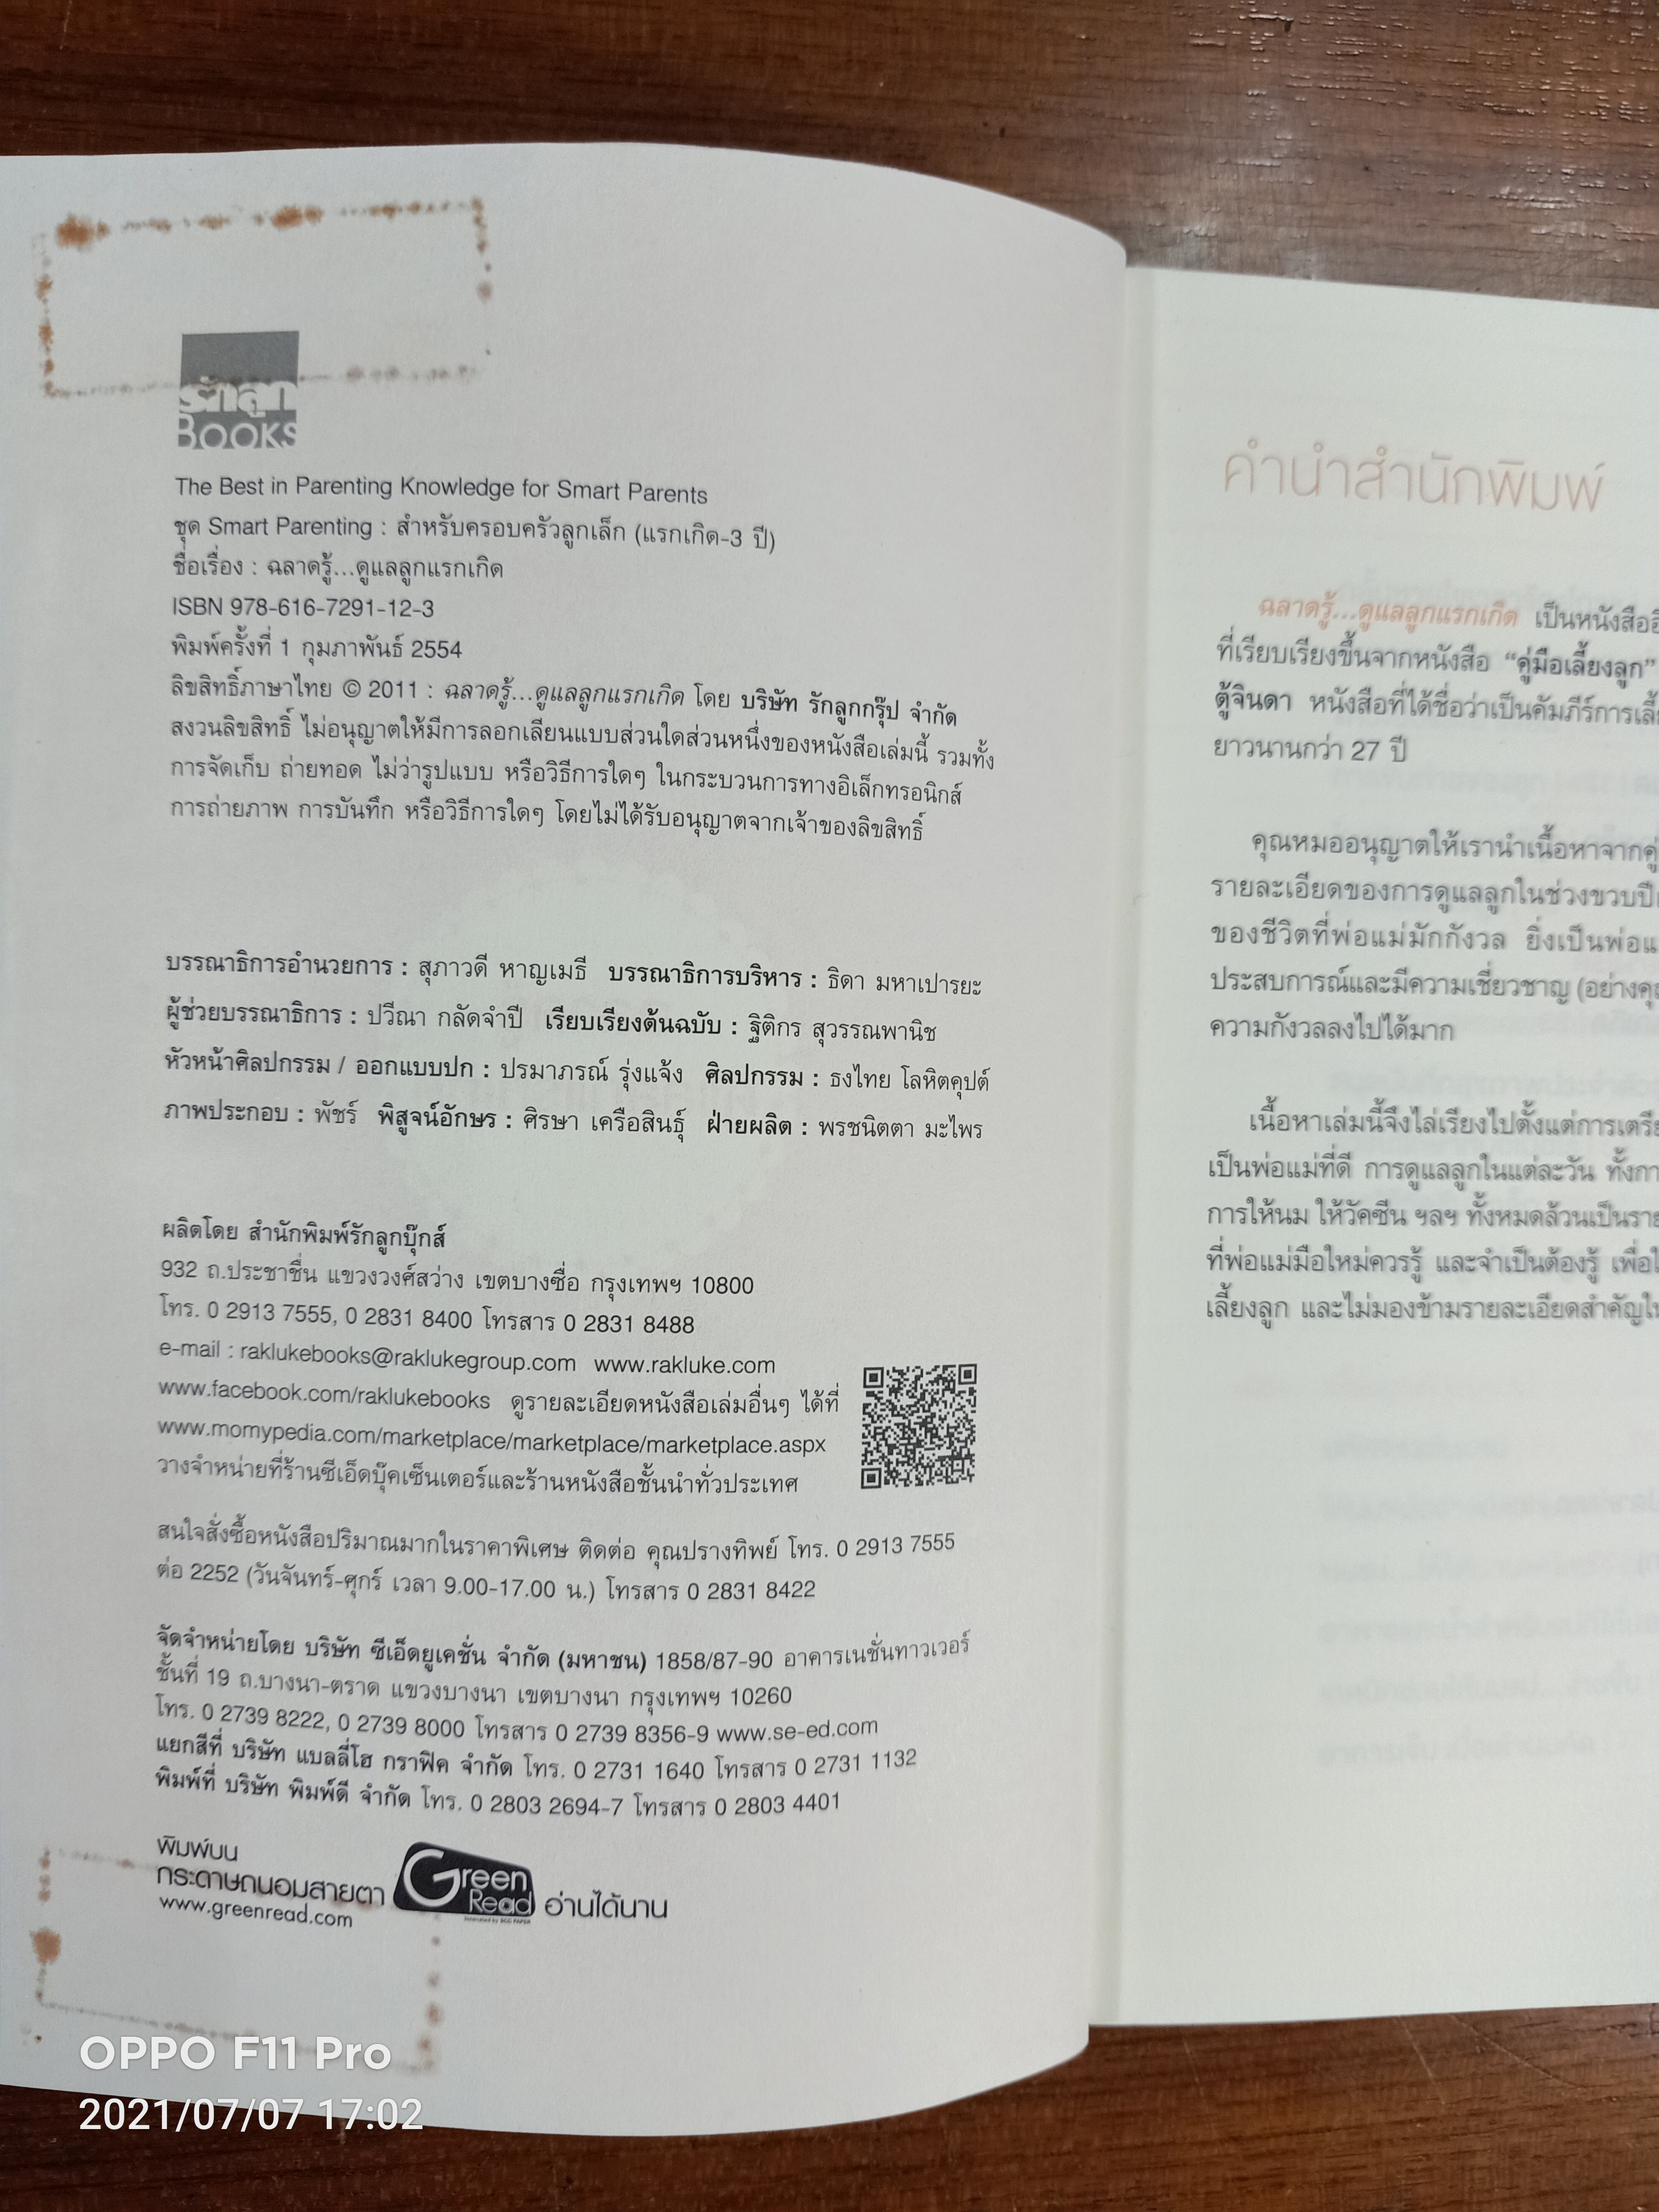 รักลูก
BOOKS
The Best in Parenting Knowledge for Smart Parents
ชุด Smart Parenting : สำหรับครอบครัวลูกเล็ก (แรกเกิด-3 ปี)
ชื่อเรื่อง : ฉลาดรู้...ดูแลลูกแรกเกิด
ISBN 978-616-7291-12-3
พิมพ์ครั้งที่ 1 กุมภาพันธ์ 2554
ลิขสิทธิ์ภาษาไทย © 2011 : ฉลาดรู้...ดูแลลูกแรกเกิด โดย บริษัท รักลูกกรุ๊ป จำกัด
สงวนลิขสิทธิ์ ไม่อนุญาตให้มีการลอกเลียนแบบส่วนใดส่วนหนึ่งของหนังสือเล่มนี้ รวมทั้ง
การจัดเก็บ ถ่ายทอด ไม่ว่ารูปแบบ หรือวิธีการใดๆ ในกระบวนการทางอิเล็กทรอนิกส์
การถ่ายภาพ การบันทึก หรือวิธีการใดๆ โดยไม่ได้รับอนุญาตจากเจ้าของลิขสิทธิ์
บรรณาธิการอำนวยการ : สุภาวดี หาญเมธี บรรณาธิการบริหาร : ธิดา มหาเปารยะ
ผู้ช่วยบรรณาธิการ : ปวีณา กลัดจำปี เรียบเรียงต้นฉบับ : ฐิติกร สุวรรณพานิช
หัวหน้าศิลปกรรม / ออกแบบปก : ปรมาภรณ์ รุ่งแจ้ง ศิลปกรรม : ธงไทย โลหิตคุปต์
ภาพประกอบ : พัชร์ พิสูจน์อักษร : ศิรษา เครือสินธุ์ ฝ่ายผลิต : พรชนิตตา มะไพร
ผลิตโดย สำนักพิมพ์รักลูกบุ๊กส์
932 ถ.ประชาชื่น แขวงวงศ์สว่าง เขตบางซื่อ กรุงเทพฯ 10800
โทร. 0 2913 7555, 0 2831 8400 โทรสาร 0 2831 8488
e-mail : raklukebooks@raklukegroup.com www.rakluke.com
www.facebook.com/raklukebooks ดูรายละเอียดหนังสือเล่มอื่นๆ ได้ที่
www.momypedia.com/marketplace/marketplace/marketplace.aspx
วางจำหน่ายที่ร้านซีเอ็ดบุ๊คเซ็นเตอร์และร้านหนังสือชั้นนำทั่วประเทศ
สนใจสั่งซื้อหนังสือปริมาณมากในราคาพิเศษ ติดต่อ คุณปรางทิพย์ โทร. 0 2913 7555
ต่อ 2252 (วันจันทร์-ศุกร์ เวลา 9.00-17.00 น.) โทรสาร 0 2831 8422
จัดจำหน่ายโดย บริษัท ซีเอ็ดยูเคชั่น จำกัด (มหาชน) 1858/87-90 อาคารเนชั่นทาวเวอร์
ชั้นที่ 19 ถ.บางนา-ตราด แขวงบางนา เขตบางนา กรุงเทพฯ 10260
โทร. 0 2739 8222, 0 2739 8000 โทรสาร 0 2739 8356-9 www.se-ed.com
แยกสีที่ บริษัท แบลลี่โฮ กราฟิค จำกัด โทร. 0 2731 1640 โทรสาร 0 2731 1132
พิมพ์ที่ บริษัท พิมพ์ดี จำกัด โทร. 0 2803 2694-7 โทรสาร 0 2803 4401
พิมพ์บน
กระดาษถนอมสายตา Green Read อ่านได้นาน
www.greenread.com
คำนำสำนักพิมพ์
ฉลาดรู้...ดูแลลูกแรกเกิด เป็นหนังสือ
ที่เรียบเรียงขึ้นจากหนังสือ “คู่มือเลี้ยงลูก”
ตู้จินดา หนังสือที่ได้ชื่อว่าเป็นคัมภีร์การเลี้
ยาวนานกว่า 27 ปี
คุณหมออนุญาตให้เรานำเนื้อหาจากคู่
รายละเอียดของการดูแลลูกในช่วงขวบปี
ของชีวิตที่พ่อแม่มักกังวล ยิ่งเป็นพ่อแ
ประสบการณ์และมีความเชี่ยวชาญ (อย่างคุ
ความกังวลลงไปได้มาก
เนื้อหาเล่มนี้จึงไล่เรียงไปตั้งแต่การเตรี
เป็นพ่อแม่ที่ดี การดูแลลูกในแต่ละวัน ทั้งกา
การให้นม ให้วัคซีน ฯลฯ ทั้งหมดล้วนเป็นราย
ที่พ่อแม่มือใหม่ควรรู้ และจำเป็นต้องรู้ เพื่อ
เลี้ยงลูก และไม่มองข้ามรายละเอียดสำคัญใน
OPPO F11 Pro
2021/07/07 17:02